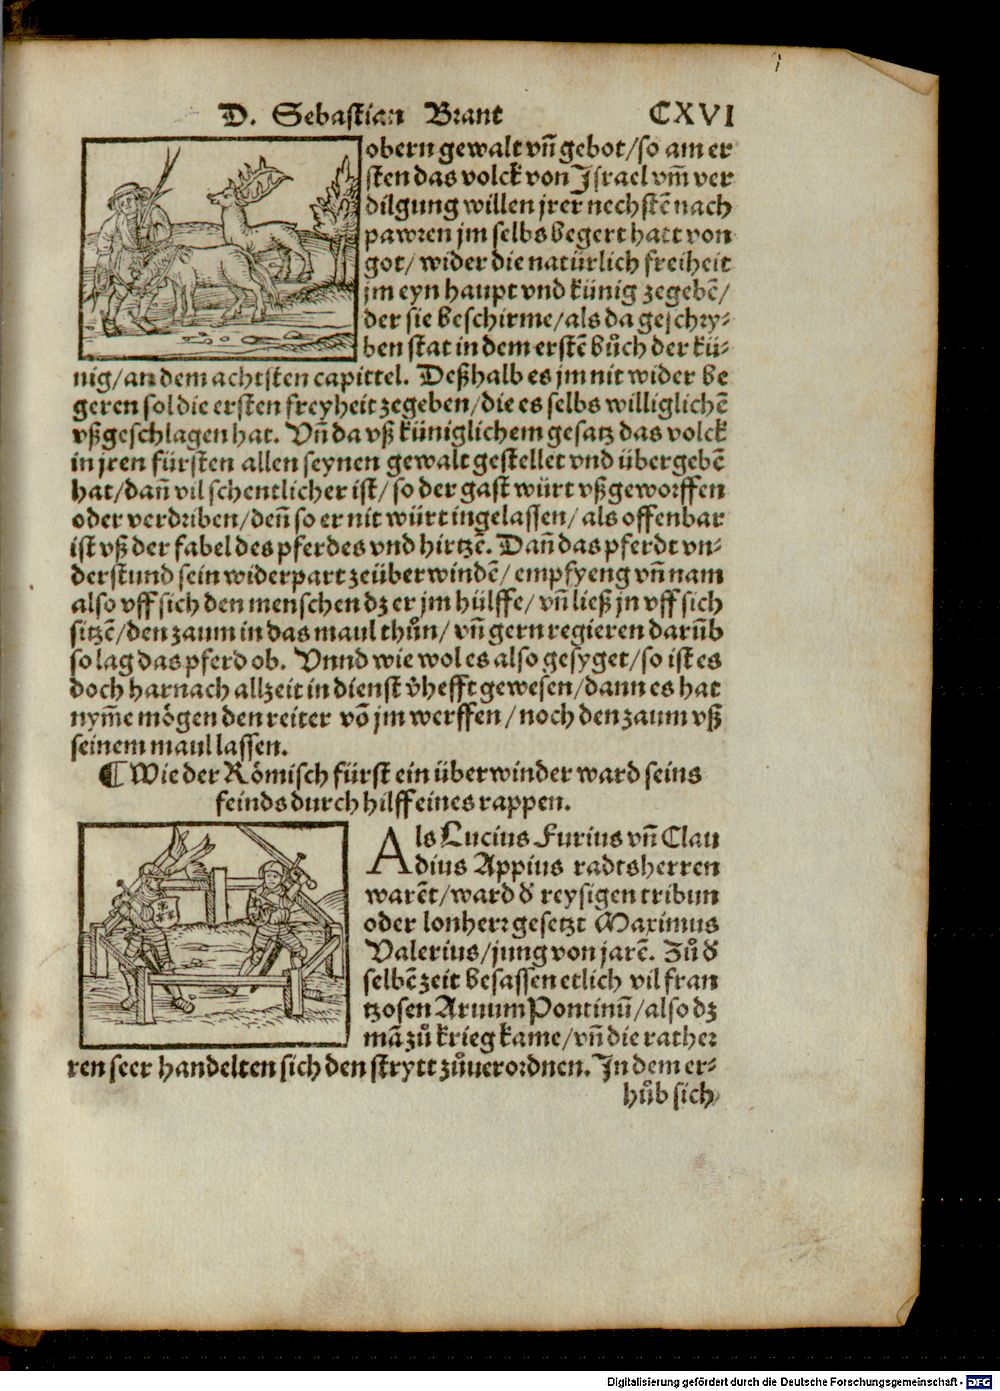 D. Sebastian Brant CXVI
obern gewalt vñ gebot/so am er
sten das volck von Jsrael vm̃ ver
dilgung willen jrer nechstẽ nach
pawren jm selbs begert hatt von
got/ wider die natürlich freiheit
jm eyn haupt vnd künig zegebẽ/
der sie beschirme/als da geschry⸗
ben stat in dem erstẽ bůch der kü⸗
nig/an dem achtsten capittel. Deßhalb es jm nit wider be
geren sol die ersten freyheit zegeben/die es selbs williglichẽ
vßgeschlagen hat. Vñ da vß küniglichem gesatz das volck
in jren fürsten allen seynen gewalt gestellet vnd übergebẽ
hat/dañ vil schentlicher ist/ so der gast würt vßgeworffen
oder verdriben/deñ so er nit würt ingelassen/ als offenbar
ist vß der fabel des pferdes vnd hirtzẽ. Dañ das pferdt vn⸗
derstund sein widerpart zeüberwindẽ/ empfyeng vñ nam
also vff sich den menschen dz er jm hülffe/ vñ ließ jn vff sich
sitzẽ/den zaum in das maul thůn/ vñ gern regieren darũb
so lag das pferd ob. Vnnd wie wol es also gesyget/so ist es
doch harnach allzeit in dienst v̊hefft gewesen/dann es hat
nym̃e mögen den reiter võ jm werffen/noch den zaum vß
seinem maul lassen.
¶ Wie der Römisch fürst ein überwinder ward seins
feinds durch hilff eines rappen.
Als Lucius Furius vñ Clau
dius Appius radtsherren
warẽt/ward d̕ reysigen tribun
oder lonherr gesetzt Maximus
Valerius/jung von jarẽ. Zů d̕
selbẽ zeit besassen etlich vil fran
tzosen Aruum Pontinũ/also dz
mã zů krieg kame/vñ die rather
ren seer handelten sich den strytt zůuerordnen. In dem er⸗
hůb sich
Digitalisierung gefördert durch die Deutsche Forschungsgemeinschaft - DFG